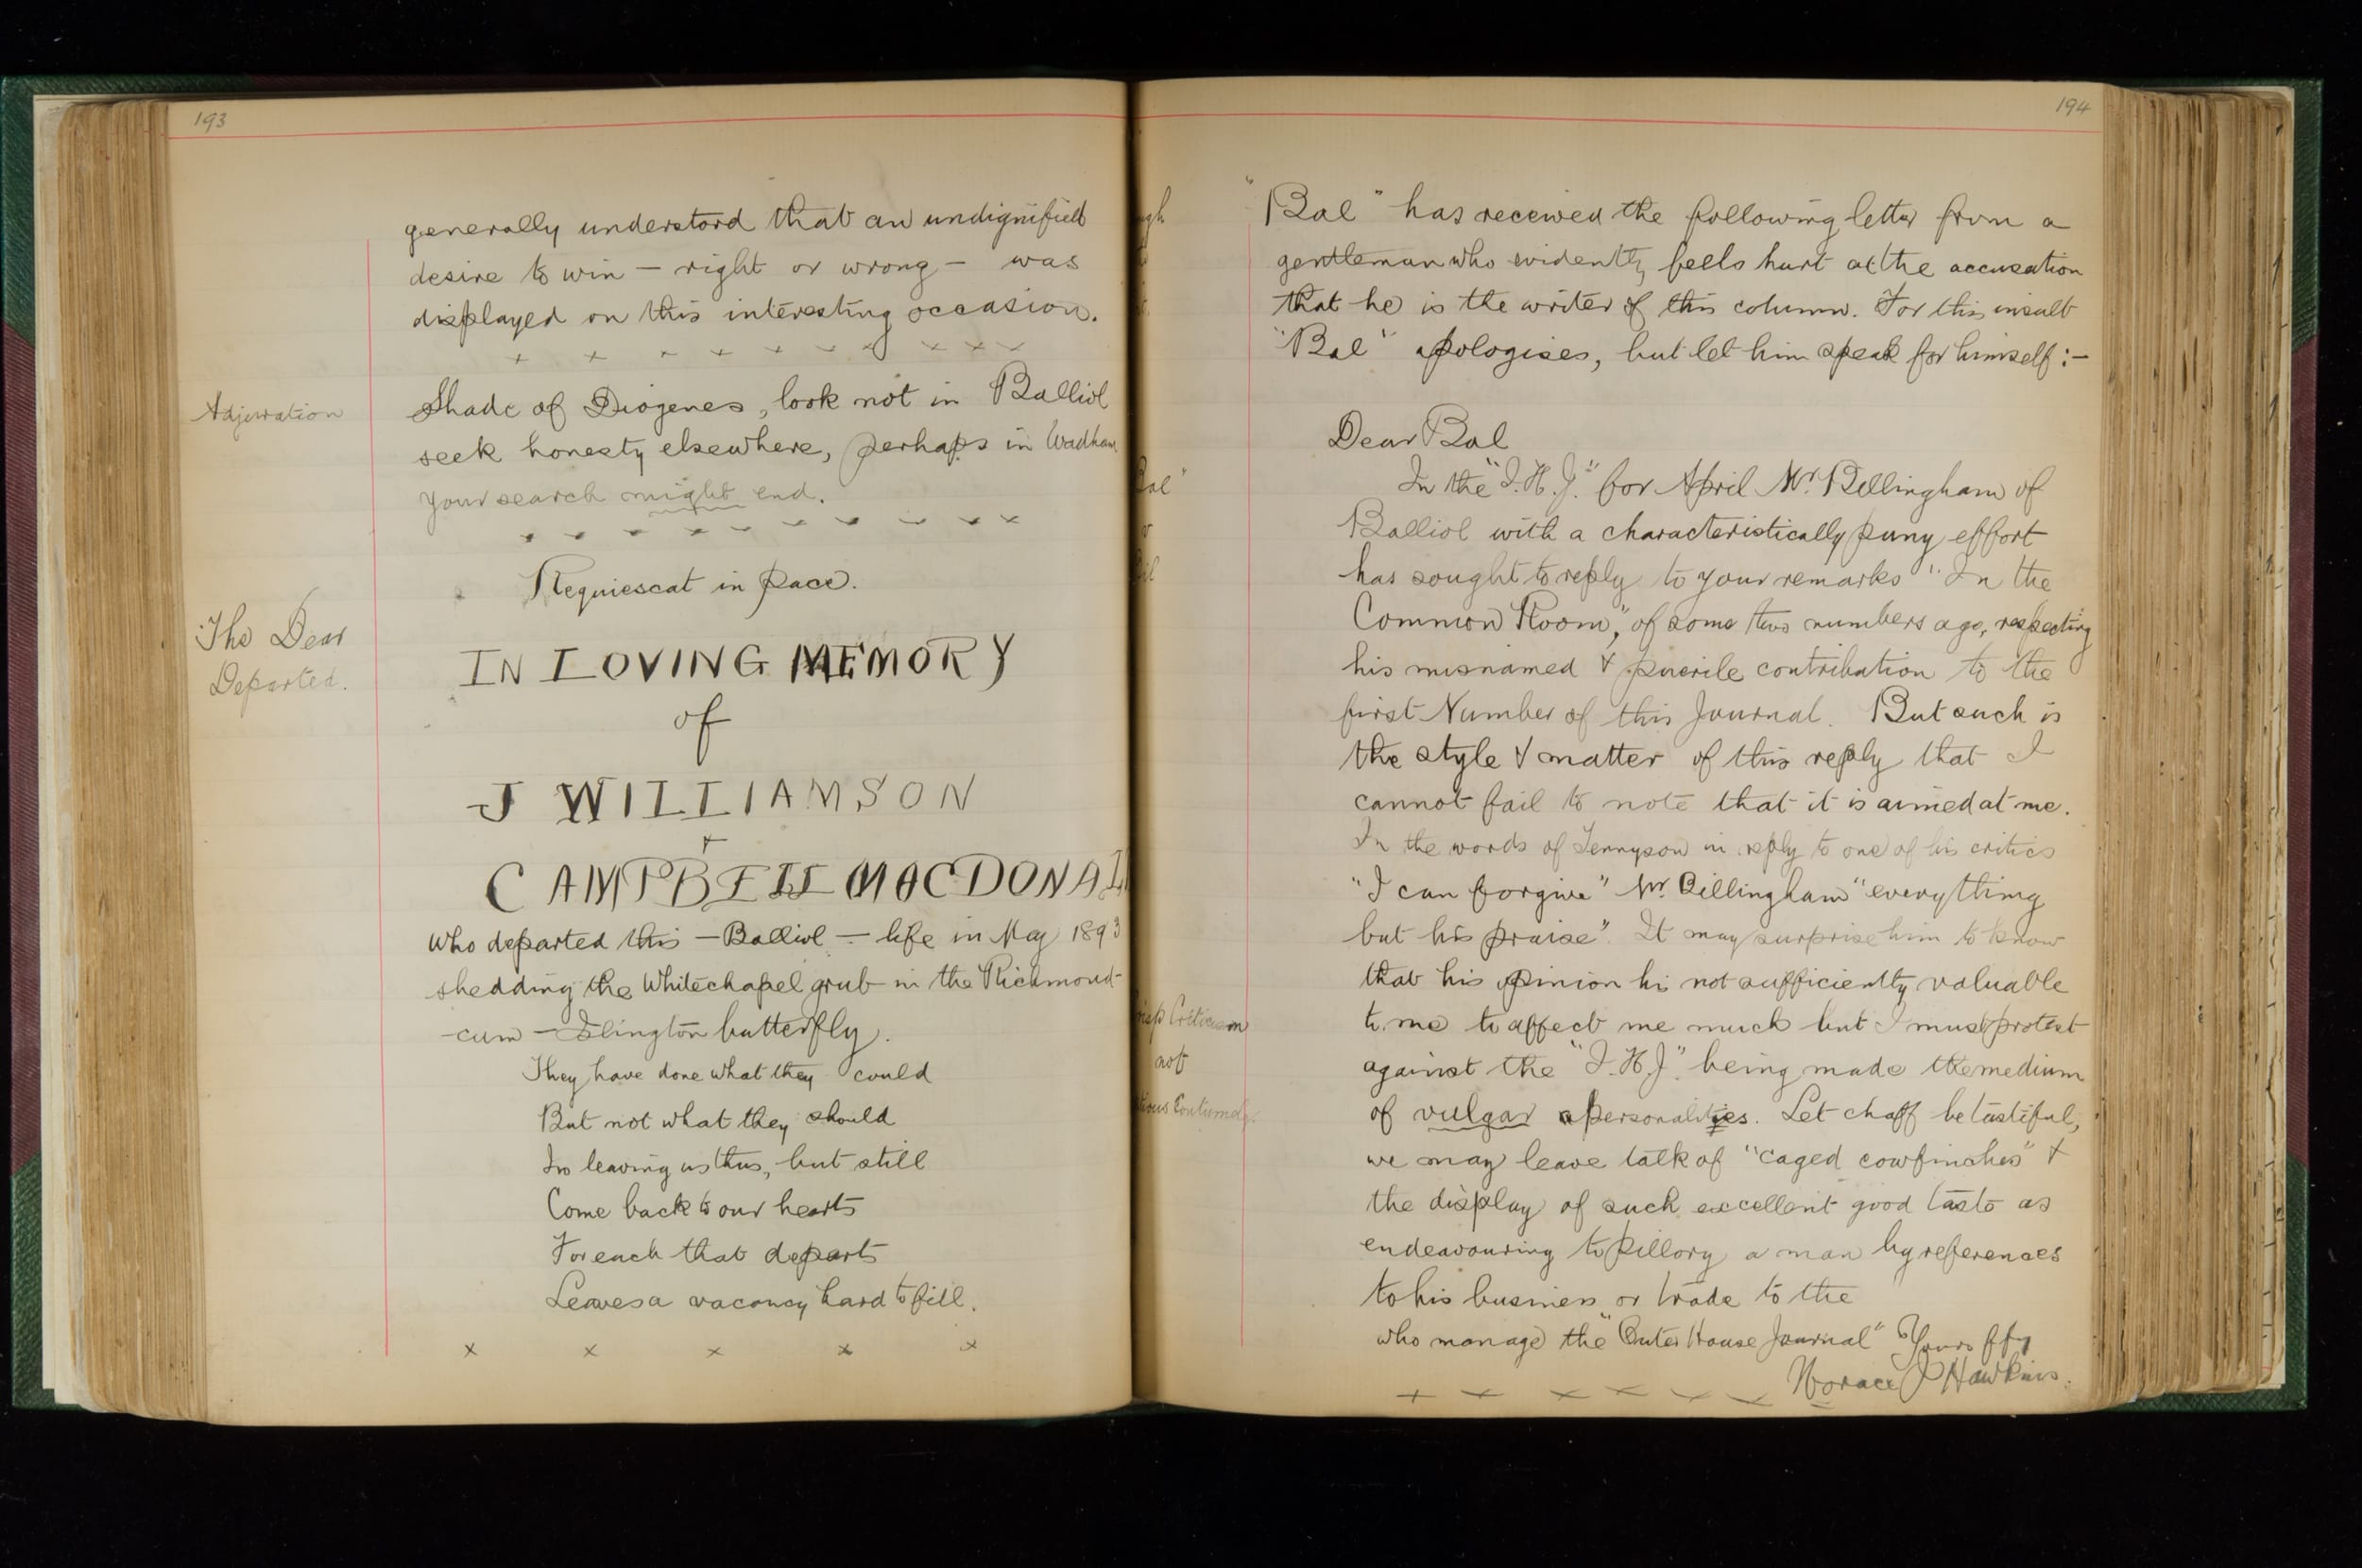 193
generally understood that an undignified
desire to win — right or wrong — was
displayed on this interesting occasion.
x x x x x x x x x x
Adjuration
Shade of Diogenes, look not in Balliol
seek honesty elsewhere, perhaps in Wadham
your search might end.
x x x x x x x x x x
Requiescat in pace.
The Dear
Departed.
IN LOVING MEMORY
of
J WILLIAMSON
+
CAMPBELL MACDONAL
who departed this — Balliol — life in May 1893
shedding the Whitechapel grub in the Richmond-
-cum-Islington butterfly.
They have done what they could
But not what they should
In leaving us thus, but still
Come back to our hearts
For each that departs
Leaves a vacancy hard to fill.
x x x x x
194
"Bal" has received the following letter from a
gentleman who evidently feels hurt at the accusation
that he is the writer of this column. For this insult
"Bal" apologises, but let him speak for himself:-
Dear Bal
In the "I.H.J." for April Mr. Billingham of
Balliol with a characteristically puny effort
has sought to reply to your remarks "In the
Common Room", of some two numbers ago, respecting
his misnamed & puerile contribution to the
first Number of this Journal. But such is
the style & matter of this reply that I
cannot fail to note that it is aimed at me.
In the words of Tennyson in reply to one of his critics
"I can forgive" Mr. Billingham "everything
but his praise". It may surprise him to know
that his opinion his not sufficiently valuable
to me to affect me much but I must protest
against the "I.H.J." being made the medium
of vulgar personalities. Let chaff be tasteful,
we may leave talk of "caged cowfinches" &
the display of such excellent good taste as
endeavouring to pillory a man by references
to his business or trade to the
who manage the "Outer House Journal" Yours ffy
Horace J Hawkins.
x x x x x x x
Criticism
not